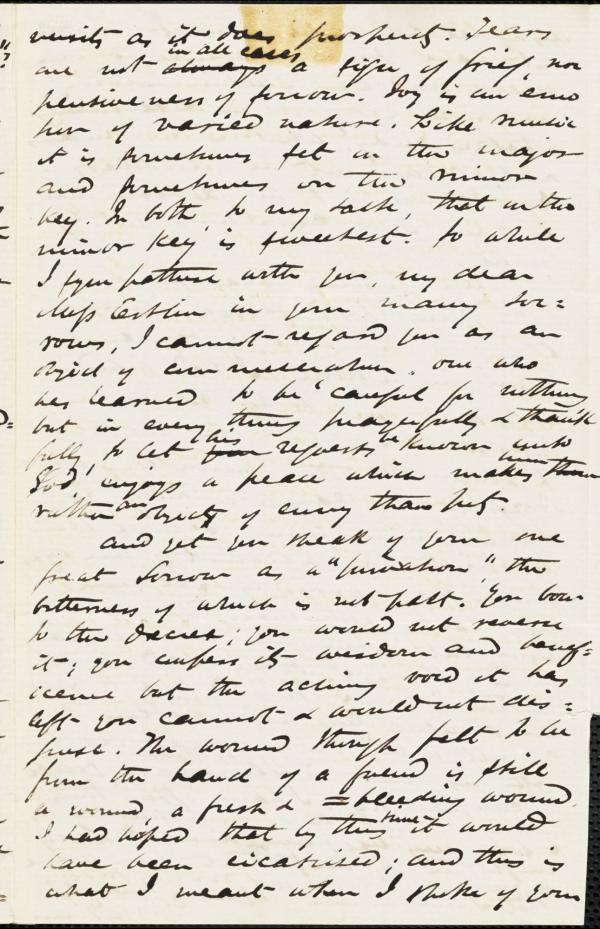 merits as it does prosperity. Tears
in all cases
are not always a sign of grief, nor
pensiveness of sorrow. Joy is an emo
tion of varied nature. Like music
it is sometimes set in the major
and sometimes on the minor
key. In both, to my taste, that in the
minor key is sweetest. So while
I sympathise with you, my dear
Miss Estlin in your many sor=
rows, I cannot regard you as an
object of commiseration. One who
has learned to be "careful for nothing
but in every thing prayerfully & thank
fully, to let his requests be known unto
God, enjoys a peace which makes him
rather an object of envy than pity.
And yet you speak of your one
great sorrow as a "privation", the
bitterness of which is not past. You bow
to the decree; you would not reverse
it; you confess its wisdom and benef=
icence but the aching void it has
left you cannot & would not dis=
guise. The wound though felt to be
from the hand of a friend is still
a wound, a fresh & =bleeding wound.
I had hoped that by this time it would
have been cicatrised; and this is
what I meant when I spoke of your